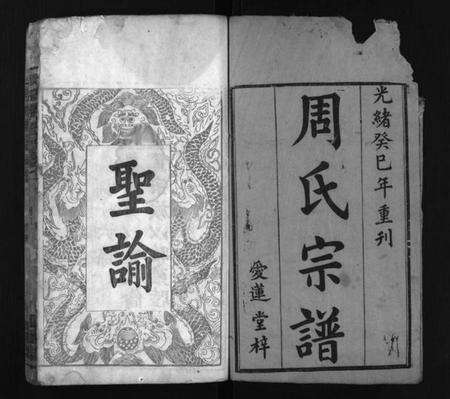 光緒癸巳年重刊
周氏宗譜
愛蓮堂梓
聖諭